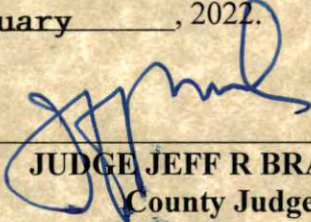 uary , 2022.
JUDGE JEFF R BRA
County Judge